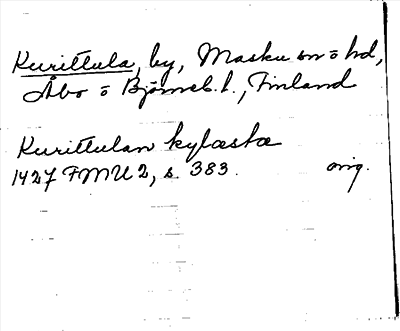 Kurittula, by, Masku sn o hd,
Åbo o Björneb. l., Finland
Kurittulan kylæstæ
1427 FMU 2, s. 383. orig.